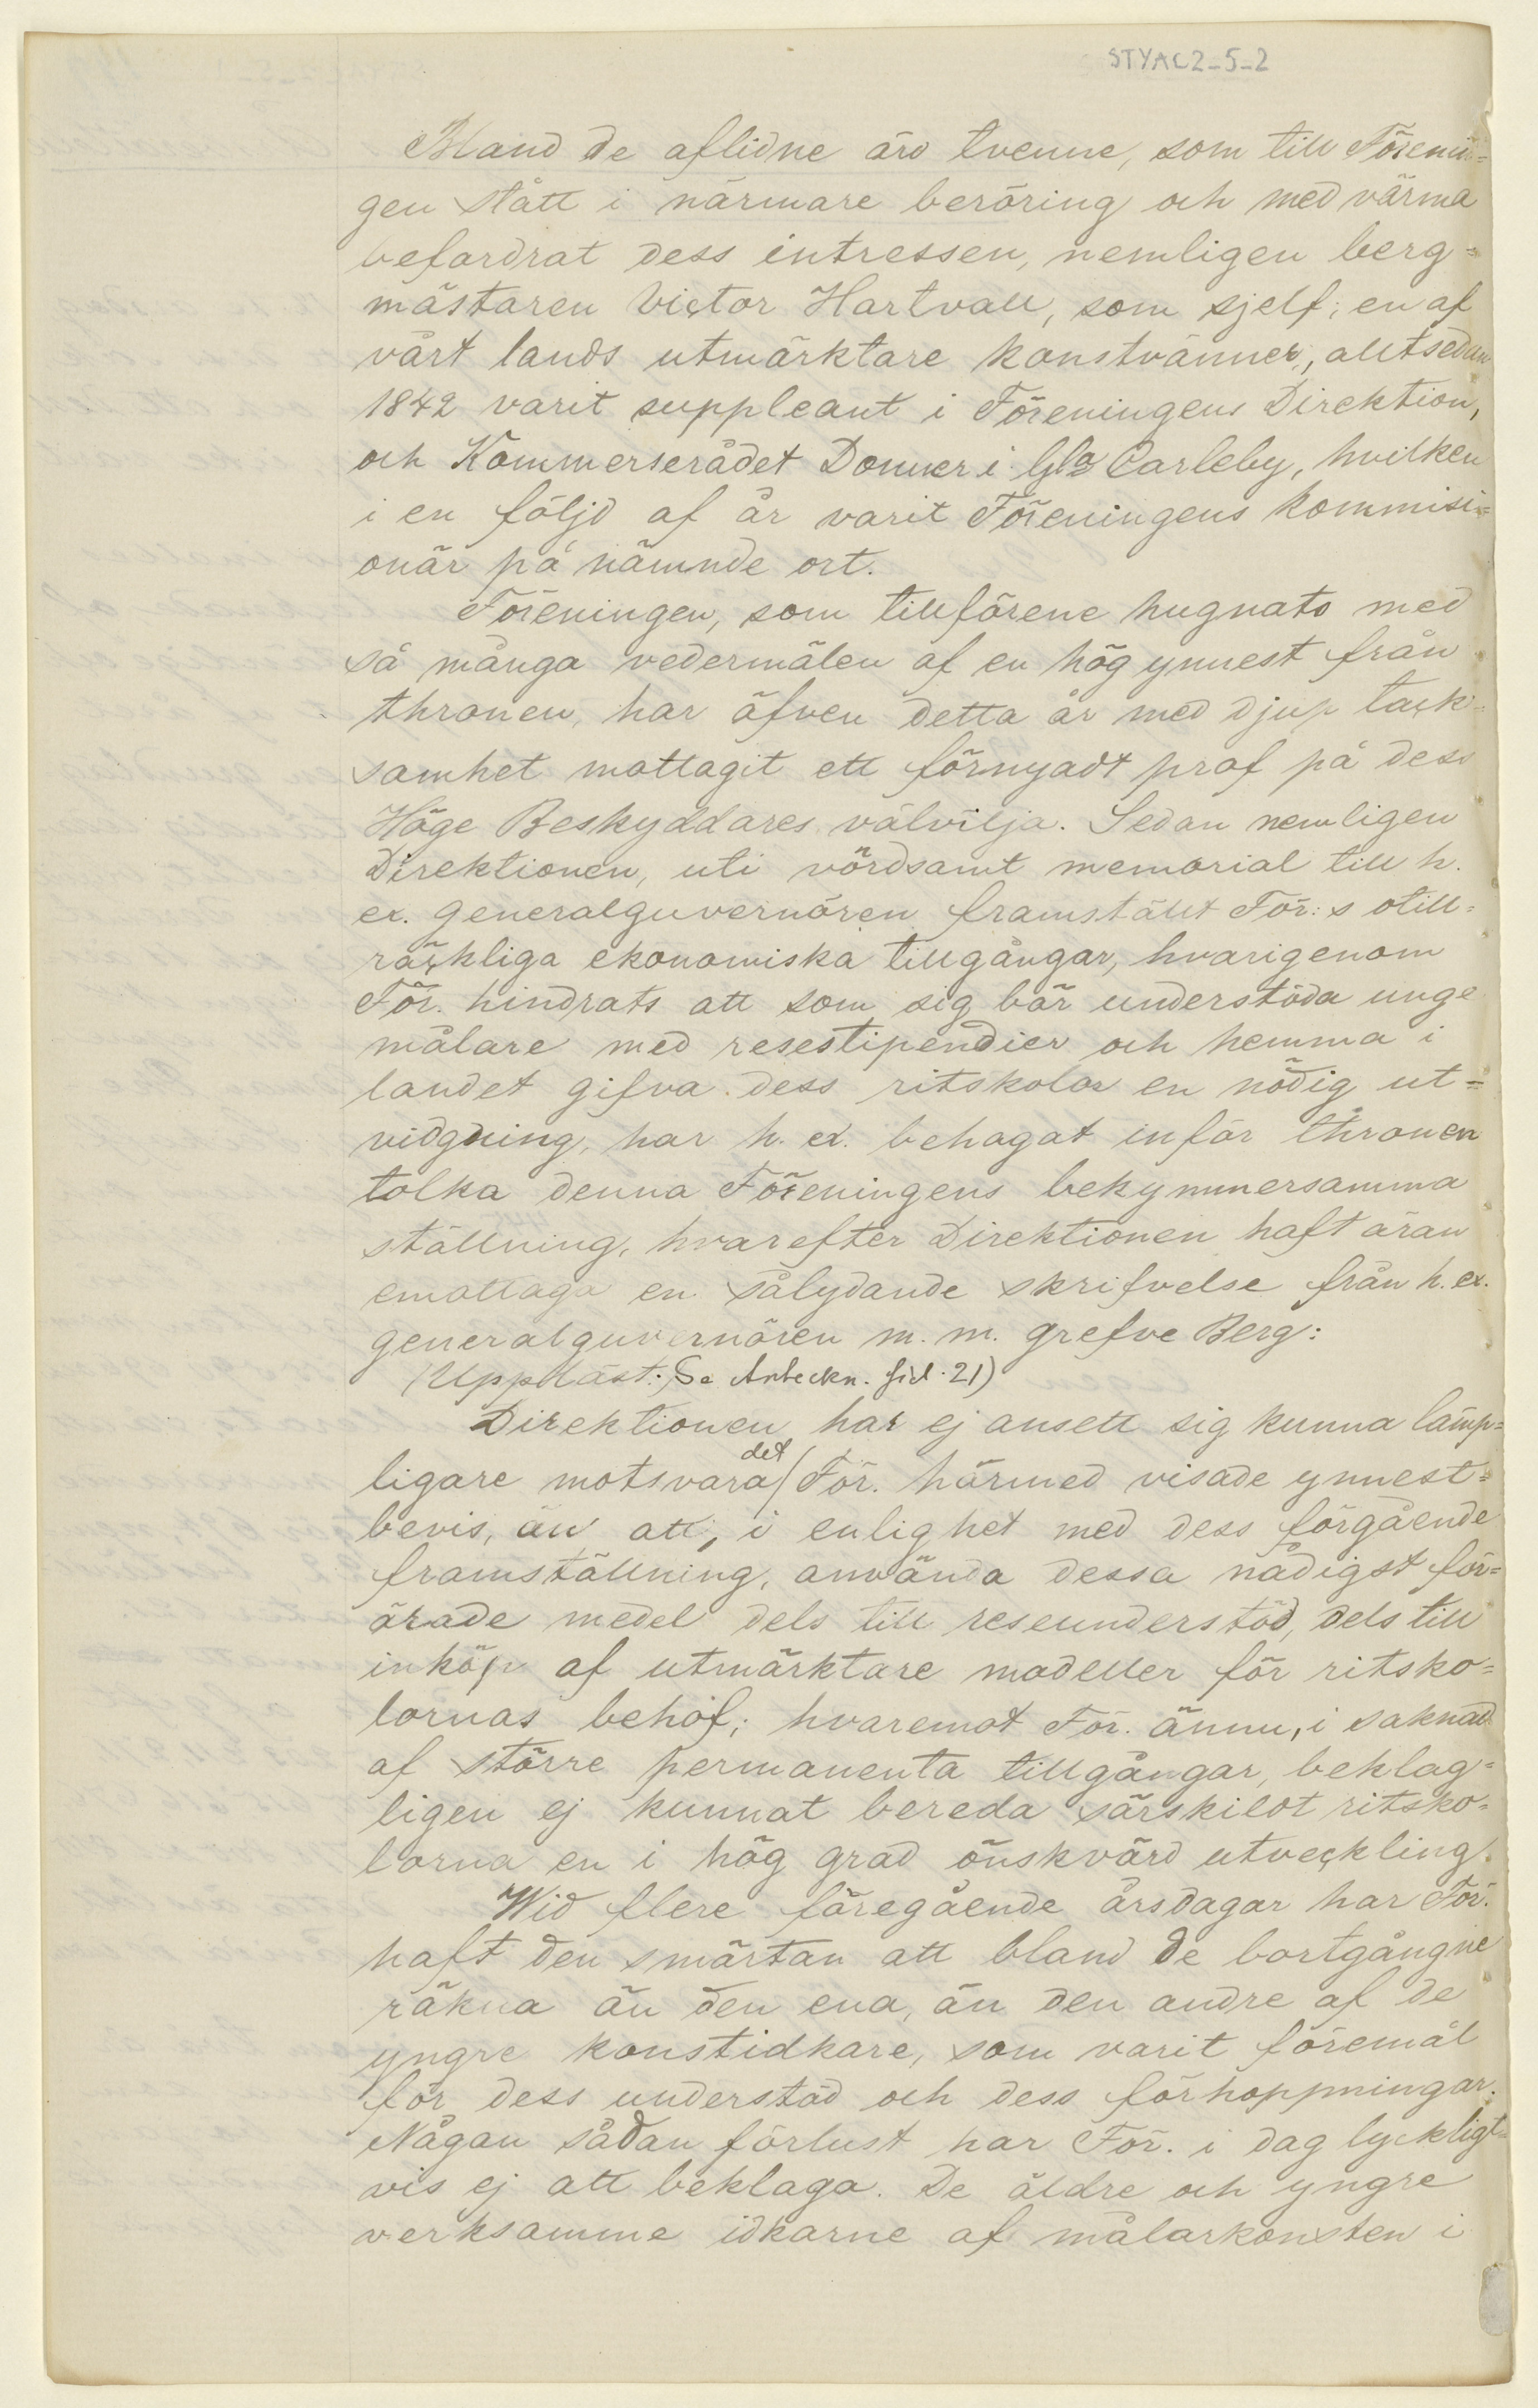 STYAC2-5-2
Bland de aflidne äro tvenne, som till Förenin=
gen stått i närmare beröring och med värma
befordrat dess intressen, nemligen berg=
mästaren Victor Hartvall, som sjelf, en af
vårt lands utmärktare konstvänner, alltsedan
1842 varit suppleant i Föreningens Direktion,
och Kommerserådet Donner i Gla Carleby, hvilken
i en följd af år varit Föreningens kommisi=
onär på nämnde ort.
Föreningen, som tillförene hugnats med
så många vedermälen af en hög ynnest från
thronen, har äfven detta år med djup tack=
samhet mottagit ett förnyadt prof på dess
Höge Beskyddares välvilja. Sedan nemligen
Direktionen, uti vördsamt memorial till h.
ex. generalguvernören framstält För:s otill=
räckliga ekonomiska tillgångar, hvarigenom
För. hindrats att som sig bör understöda unge
målare med resestipendier och hemma i
landet gifva dess ritskolor en nödig ut=
vidgning, har h. ex. behagat inför thronen
tolka denna Föreningens bekymmersamma
ställning, hvarefter Direktionen haft äran
emottaga en sålydande skrifvelse från h. ex.
generalguvernören m. m. grefve Berg:
(Uppläst. Se Anteckn. sid. 21)
Direktionen har ej ansett sig kunna lämp=
ligare motsvara det För. härmed visade ynnest=
bevis, än att, i enlighet med dess förgående
framställning, använda dessa nådigst för=
ärade medel dels till reseunderstöd, dels till
inköp af utmärktare modeller för ritsko=
lornas behof; hvaremot För. ännu, i saknad
af större permanenta tillgångar, beklag=
ligen ej kunnat bereda särskildt ritsko=
lorna en i hög grad önskvärd utveckling.
Wid flere föregående årsdagar har För.
haft den smärtan att bland de bortgångne
räkna än den ena, än den andre af de
yngre konstidkare, som varit föremål
för dess understöd och dess förhoppningar.
Någon sådan förlust har För. i dag lyckligt=
vis ej att beklaga. De äldre och yngre
verksamme idkarne af målarkonsten i